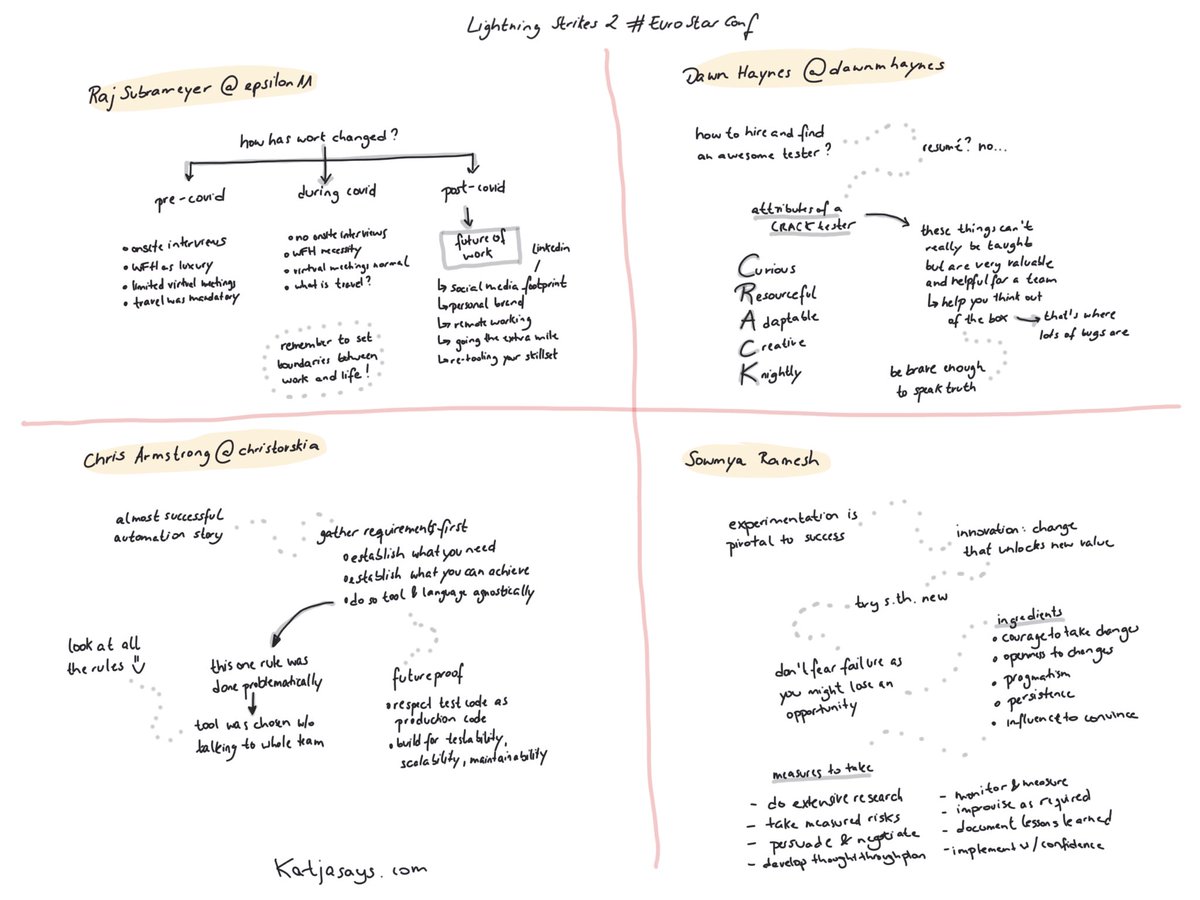 Lightning Strikes 2 #EuroStarConf
Raj Subrameyer @epsilon11
how has work changed?
pre-covid
• onsite interviews
• WFH as luxury
• limited virtual meetings
• travel was mandatory
during covid
• no onsite interviews
• WFH necessity
• virtual meetings normal
• what is travel?
post-covid
future of
work
linkedin
↳ social media footprint
↳ personal brand
↳ remote working
↳ going the extra mile
↳ re-tooling your skillset
remember to set
boundaries between
work and life!
Dawn Haynes @dawnmhaynes
how to hire and find
an awesome tester?
resumé? no...
attributes of a
CRACK tester
Curious
Resourceful
Adaptable
Creative
Knightly
these things can't
really be taught
but are very valuable
and helpful for a team
↳ help you think out
of the box → that's where
lots of bugs are
be brave enough
to speak truth
Chris Armstrong @christovskia
almost successful
automation story
gather requirements first
• establish what you need
• establish what you can achieve
• do so tool & language agnostically
look at all
the rules
this one rule was
done problematically
tool was chosen w/o
talking to whole team
futureproof
• respect test code as
production code
• build for testability,
scalability, maintainability
Sowmya Ramesh
experimentation is
pivotal to success
innovation: change
that unlocks new value
try s.th. new
don't fear failure as
you might lose an
opportunity
ingredients
• courage to take changes
• openness to changes
• pragmatism
• persistence
• influence to convince
measures to take
- do extensive research
- take measured risks
- persuade & negotiate
- develop thought through plan
- monitor & measure
- improvise as required
- document lessons learned
- implement w/ confidence
Katjasays.com